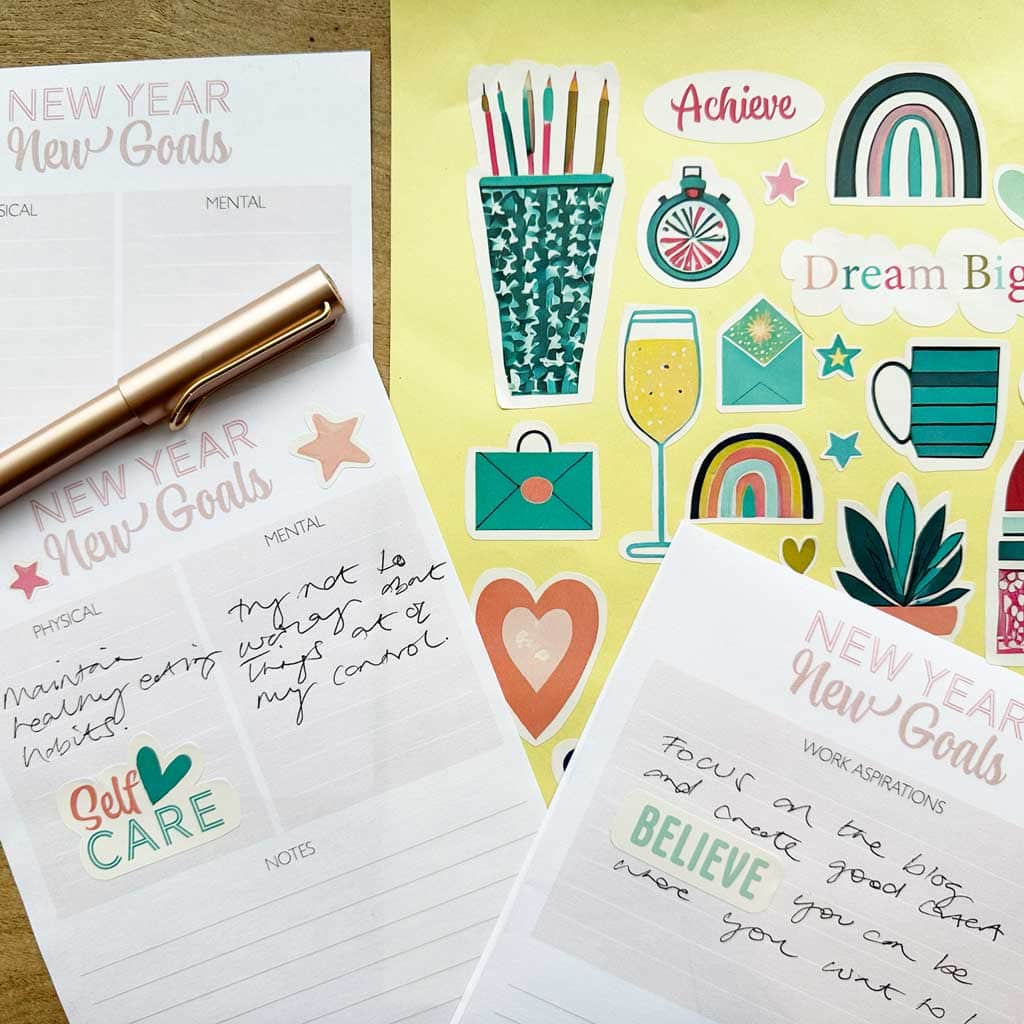 NEW YEAR
New Goals
SICAL
MENTAL
Achieve
Dream Big
NEW YEAR
New Goals
PHYSICAL
MENTAL
Maintain
healthy eating
habits.
try not to
worry about
things out of
my control.
Self
CARE
NOTES
NEW YEAR
New Goals
WORK ASPIRATIONS
Focus on the blog
and create good content
BELIEVE
where you you can be
you want to